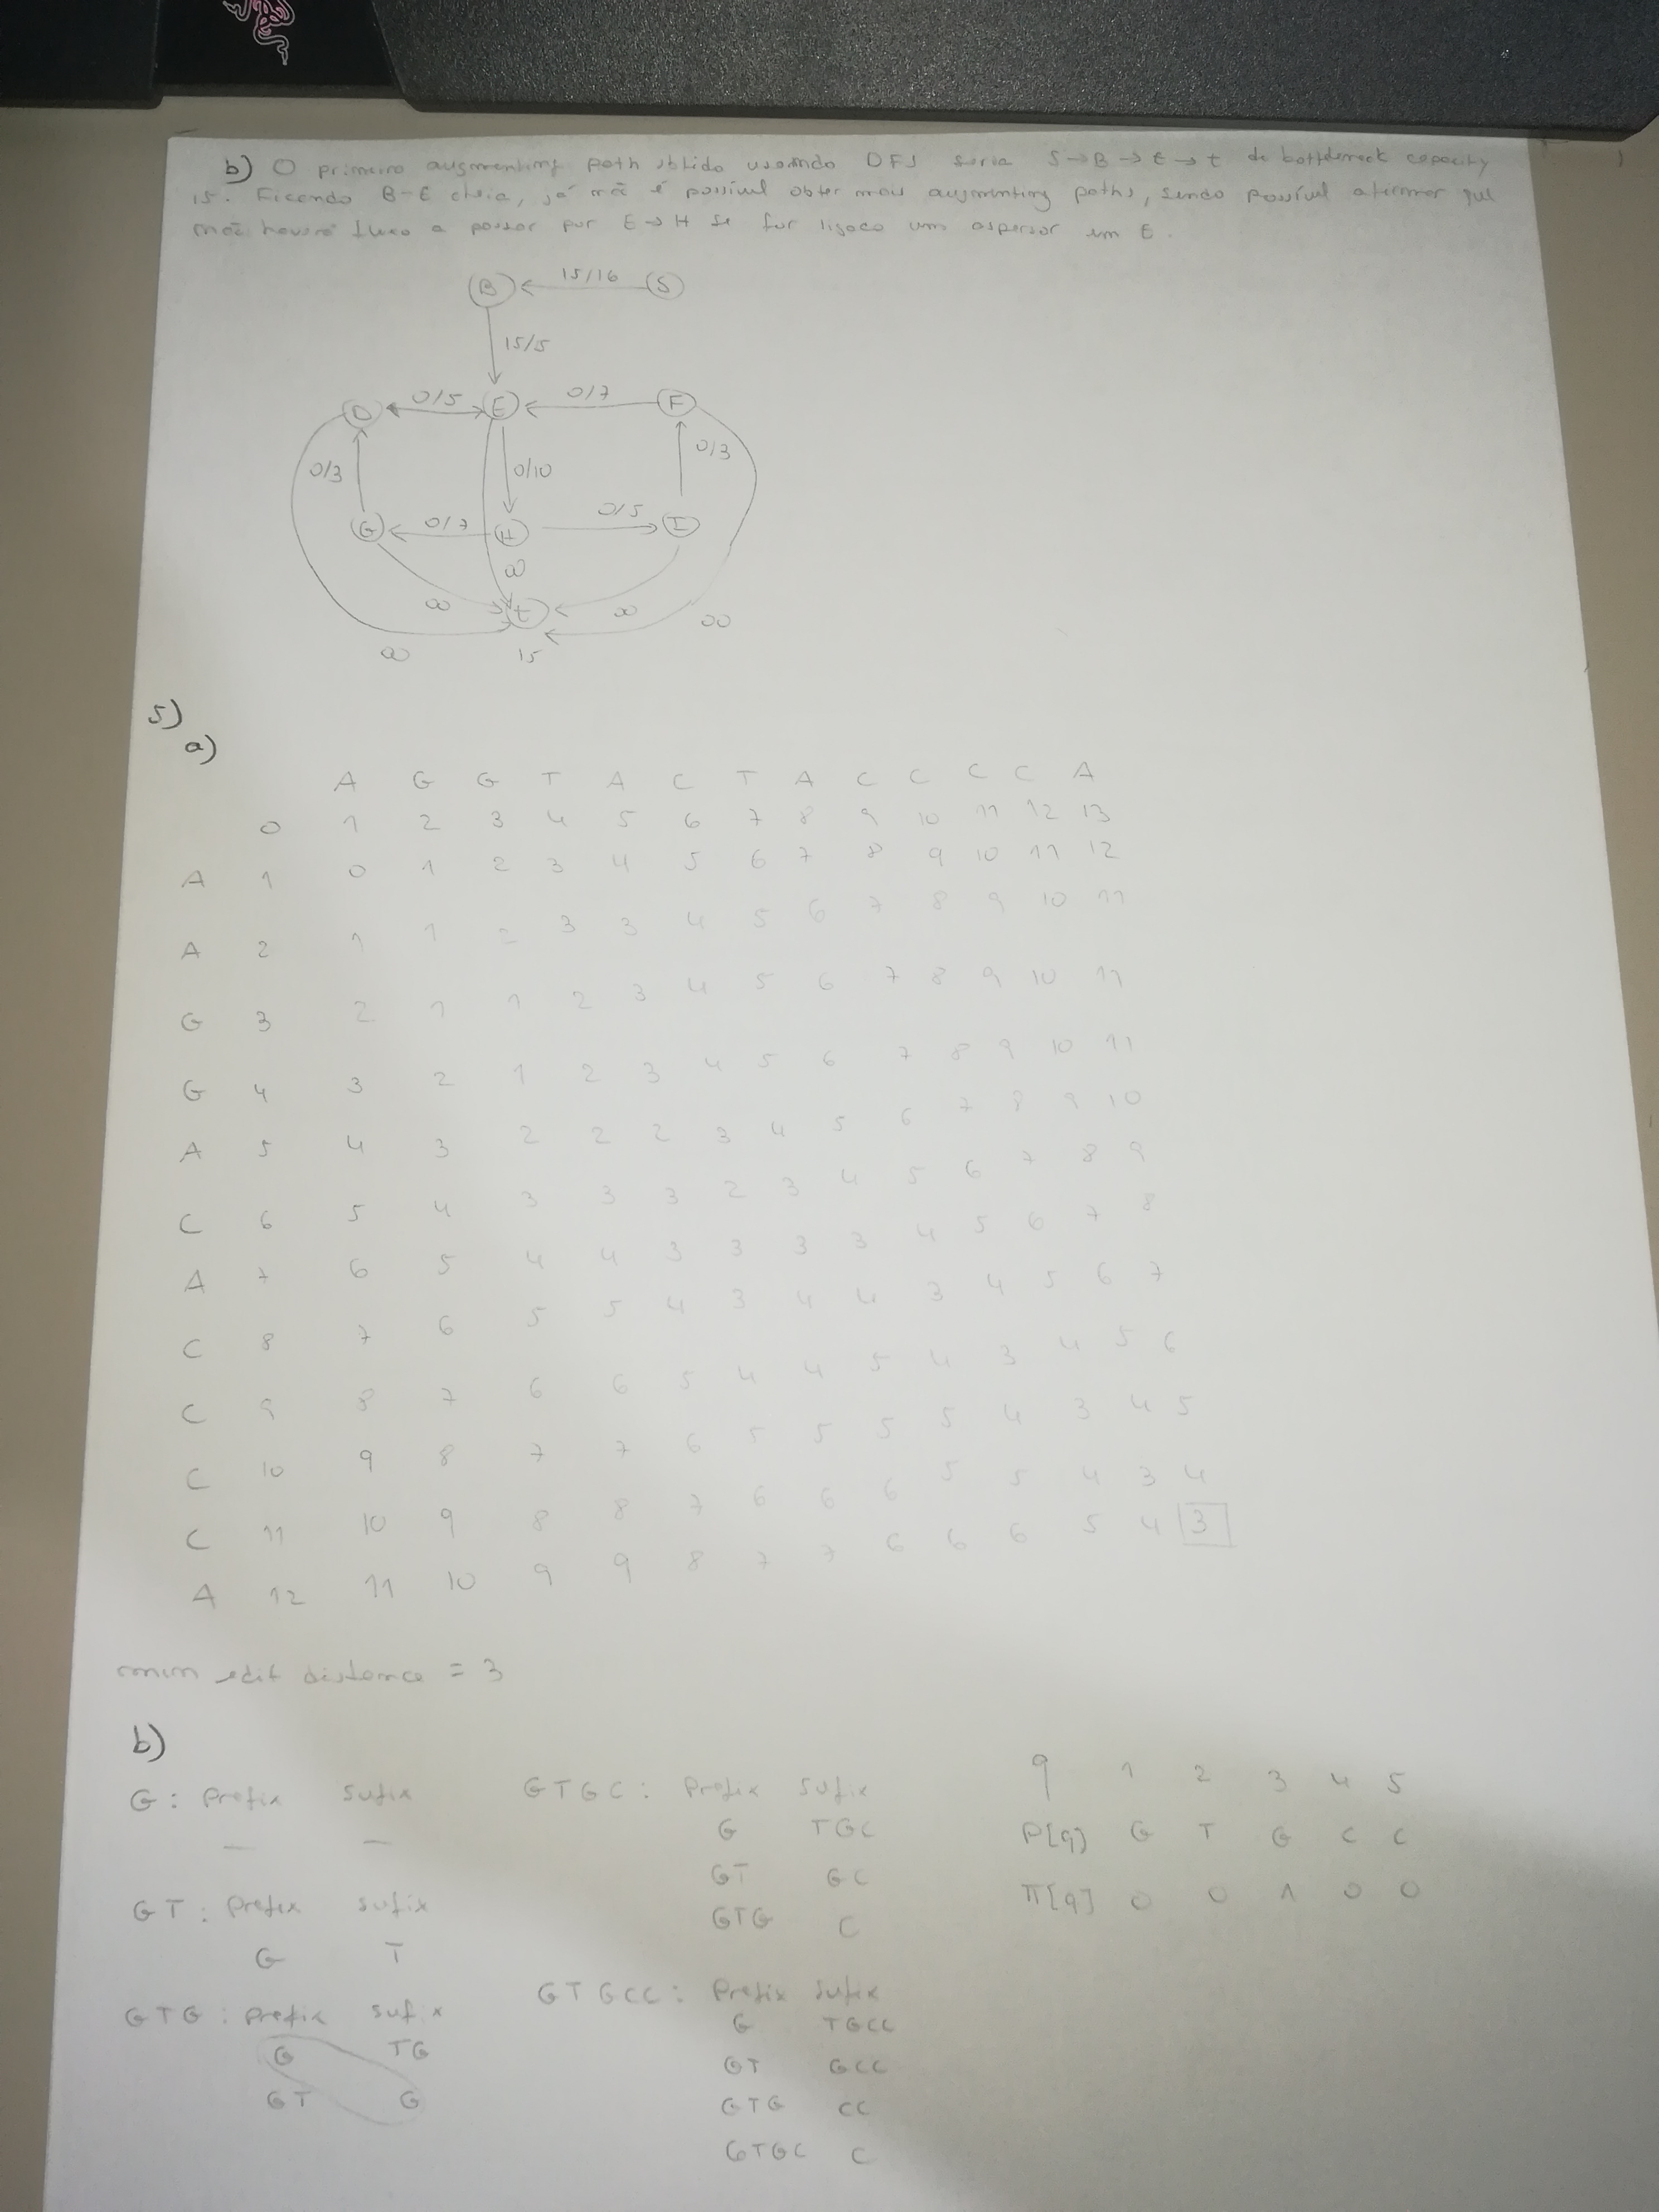 b) O primeiro augmenting path obtido usando DFS seria S→B→E→t de bottleneck capacity
15. Ficando B-E cheia, já não é possível obter mais augmenting paths, sendo possível afirmar que
não haverá fluxo a passar por E→H se for ligado um aspersor em E.
B 15/16 S
15/5
D 0/5 E 0/7 F
0/3 0/10 0/3
G 0/7 H 0/5 I
∞
∞ t ∞ ∞
∞ 15
5)
a)
A G G T A C T A C C C C A
0 1 2 3 4 5 6 7 8 9 10 11 12 13
A 1 0 1 2 3 4 5 6 7 8 9 10 11 12
A 2 1 1 2 3 3 4 5 6 7 8 9 10 11
G 3 2 1 1 2 3 4 5 6 7 8 9 10 11
G 4 3 2 1 2 3 4 5 6 7 8 9 10 11
A 5 4 3 2 2 2 3 4 5 6 7 8 9 10
C 6 5 4 3 3 3 2 3 4 5 6 7 8 9
A 7 6 5 4 4 3 3 3 3 4 5 6 7 8
C 8 7 6 5 5 4 3 4 4 3 4 5 6 7
C 9 8 7 6 6 5 4 4 5 4 3 4 5 6
C 10 9 8 7 7 6 5 5 5 5 4 3 4 5
C 11 10 9 8 8 7 6 6 6 5 5 4 3 4
A 12 11 10 9 9 8 7 7 6 6 6 5 4 3
min edit distance = 3
b)
G: Prefix Sufix
— —
GT: Prefix Sufix
G T
GTG: Prefix Sufix
G TG
GT G
GTGC: Prefix Sufix
G TGC
GT GC
GTG C
GTGCC: Prefix Sufix
G TGCC
GT GCC
GTG CC
GTGC C
q 1 2 3 4 5
P[q] G T G C C
π[q] 0 0 1 0 0